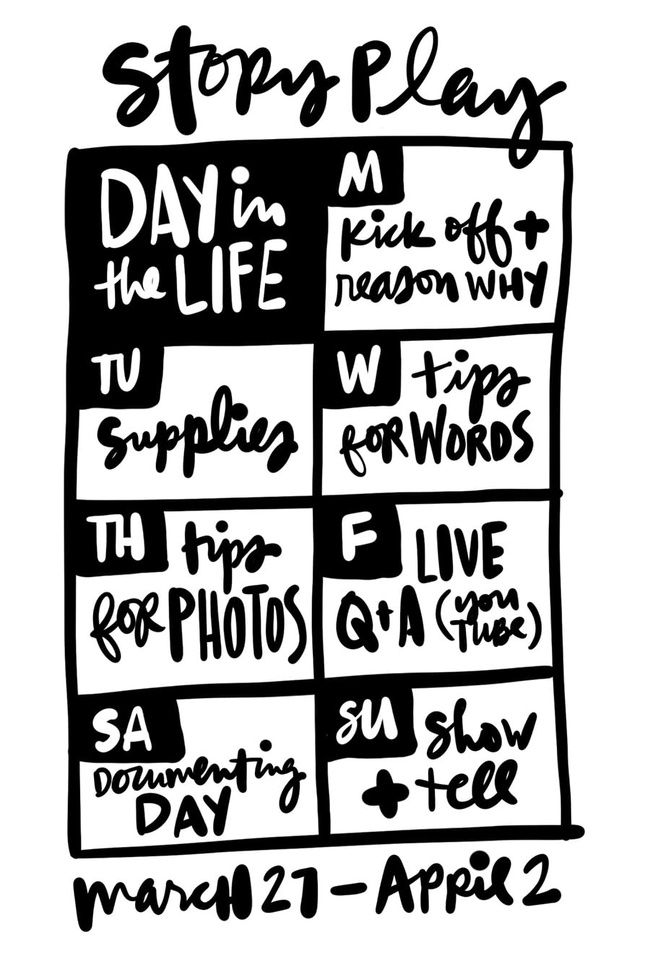 Story Play
DAY in
the LIFE
M
kick off +
reason WHY
TU
supplies
W
tips
for WORDS
TH
tips
for PHOTOS
F
LIVE
Q+A (you
TUBE)
SA
DOCUMENTING
DAY
SU
show
+ tell
March 27 - April 2